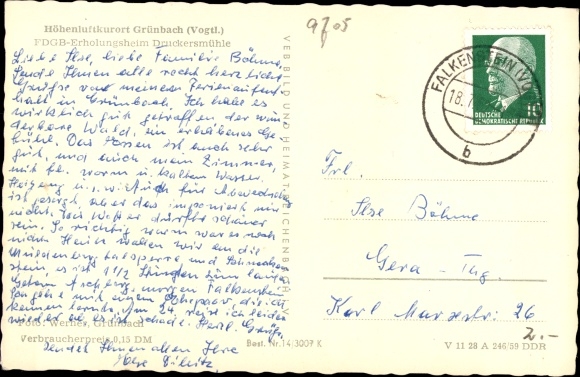 Höhenluftkurort Grünbach (Vogtl.)
FDGB-Erholungsheim Druckersmühle
Liebe Ilse, liebe Familie Böhme,
Sende Ihnen alle recht herzliche
Grüße von meinem Ferienaufent-
halt in Grünbach. Ich habe es
wirklich gut getroffen, der wun-
derbare Wald, ein erhabenes Ge-
fühl. Das Essen ist auch sehr
gut, und auch mein Zimmer,
mit fl. warm u. kalten Wasser.
Heizung u. für Abwechslung
ist gesorgt, aber das imponiert mir
nicht. Das Wetter dürfte schöner
sein. So richtig warm war es noch
nicht. Heute wollen wir an die
Talsperre, und
stein, es ist 1 1/2 Stunden zum laufen
morgen Falkenstein
gehe mit einem Ehepaar, die ich
kennen lernte. Am 24. reise ich leider
wieder ab. Schade. Herzl. Grüße
sendet Ihnen allen Ihre
Foto: Werner, Grünbach
Verbraucherpreis 0,15 DM
Best. Nr. 14/3009 K
V 11 28 A 246/59 DDR
VEB BILD UND HEIMAT REICHENBACH I. V.
9705
FALKENSTEIN (VOGTL)
18.7.
b
10
DEUTSCHE
DEMOKRATISCHE REPUBLIK
Frl.
Ilse Böhme
Gera - Thg.
Karl Marxstr. 26
2.-